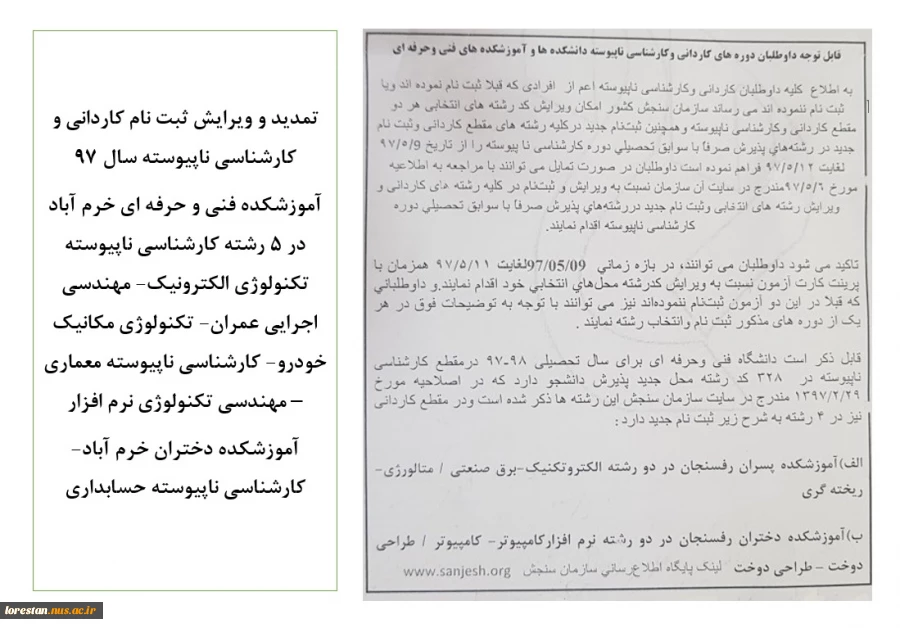 قابل توجه داوطلبان دوره های کاردانی وکارشناسی ناپیوسته دانشکده ها و آموزشکده های فنی وحرفه ای
به اطلاع کلیه داوطلبان کاردانی وکارشناسی ناپیوسته اعم از افرادی که قبلا ثبت نام نموده اند ویا
ثبت نام ننموده اند می رساند سازمان سنجش کشور امکان ویرایش کد رشته های انتخابی هر دو
مقطع کاردانی وکارشناسی ناپیوسته وهمچنین ثبت‌نام جدید درکلیه رشته های مقطع کاردانی وثبت نام
جدید در رشته‌هاي پذیرش صرفاً با سوابق تحصیلي دوره کارشناسی نا پیوسته را از تاریخ 97/5/9
لغایت ۹۷/۵/۱۲ فراهم نموده است داوطلبان در صورت تمایل می توانند با مراجعه به اطلاعیه
مورخ ۹۷/۵/٦مندرج در سایت آن سازمان نسبت به ویرایش و ثبت‌نام در کلیه رشته های کاردانی و
ویرایش رشته های انتخابی وثبت نام جدید دررشته‌های پذیرش صرفاً با سوابق تحصیلي دوره
کارشناسی ناپیوسته اقدام نمایند.
تاکید می شود داوطلبان می توانند، در بازه زماني 97/05/09لغایت ۹۷/۵/۱۱ همزمان با
پرینت کارت آزمون نسبت به ویرایش کدرشته محل‌هاي انتخابي خود اقدام نمایند.و داوطلباني
که قبلا در این دو آزمون ثبت‌نام ننموده‌اند نیز می توانند با توجه به توضیحات فوق در هر
یک از دوره های مذکور ثبت نام وانتخاب رشته نمایند .
قابل ذکر است دانشگاه فنی وحرفه ای برای سال تحصیلی ۹۸-۹۷ درمقطع کارشناسی
ناپیوسته در ۳۲۸ کد رشته محل جدید پذیرش دانشجو دارد که در اصلاحیه مورخ
۱۳۹۷/۲/۲۹ مندرج در سایت سازمان سنجش این رشته ها ذکر شده است ودر مقطع کاردانی
نیز در ۴ رشته به شرح زیر ثبت نام جدید دارد:
الف)آموزشکده پسران رفسنجان در دو رشته الکتروتکنیک-برق صنعتی / متالورژی-
ریخته گری
ب)آموزشکده دختران رفسنجان در دو رشته نرم افزارکامپیوتر- کامپیوتر / طراحی
دوخت – طراحی دوخت لینک پایگاه اطلاع‌رساني سازمان سنجش www.sanjesh.org
تمدید و ویرایش ثبت نام کاردانی و
کارشناسی ناپیوسته سال ۹۷
آموزشکده فنی و حرفه ای خرم آباد
در ۵ رشته کارشناسی ناپیوسته
تکنولوژی الکترونیک- مهندسی
اجرایی عمران- تکنولوژی مکانیک
خودرو- کارشناسی ناپیوسته معماری
– مهندسی تکنولوژی نرم افزار
آموزشکده دختران خرم آباد-
کارشناسی ناپیوسته حسابداری
lorestan.nus.ac.ir